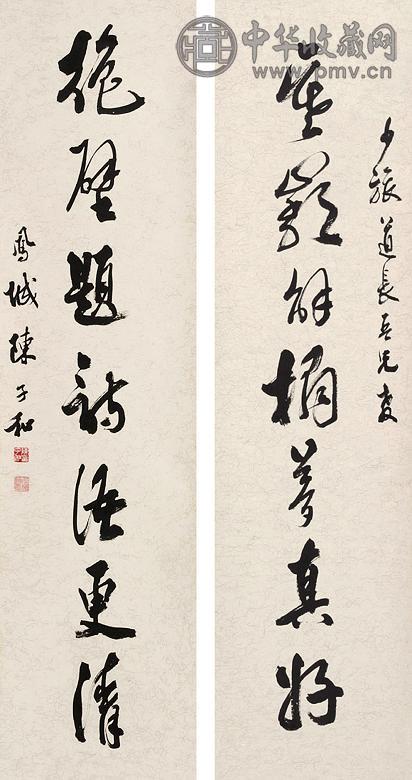 中华收藏网
www.pmv.cn
少旅道長吾兄教
解榻夢真好
壁題詩語更清
鳳城陳子和